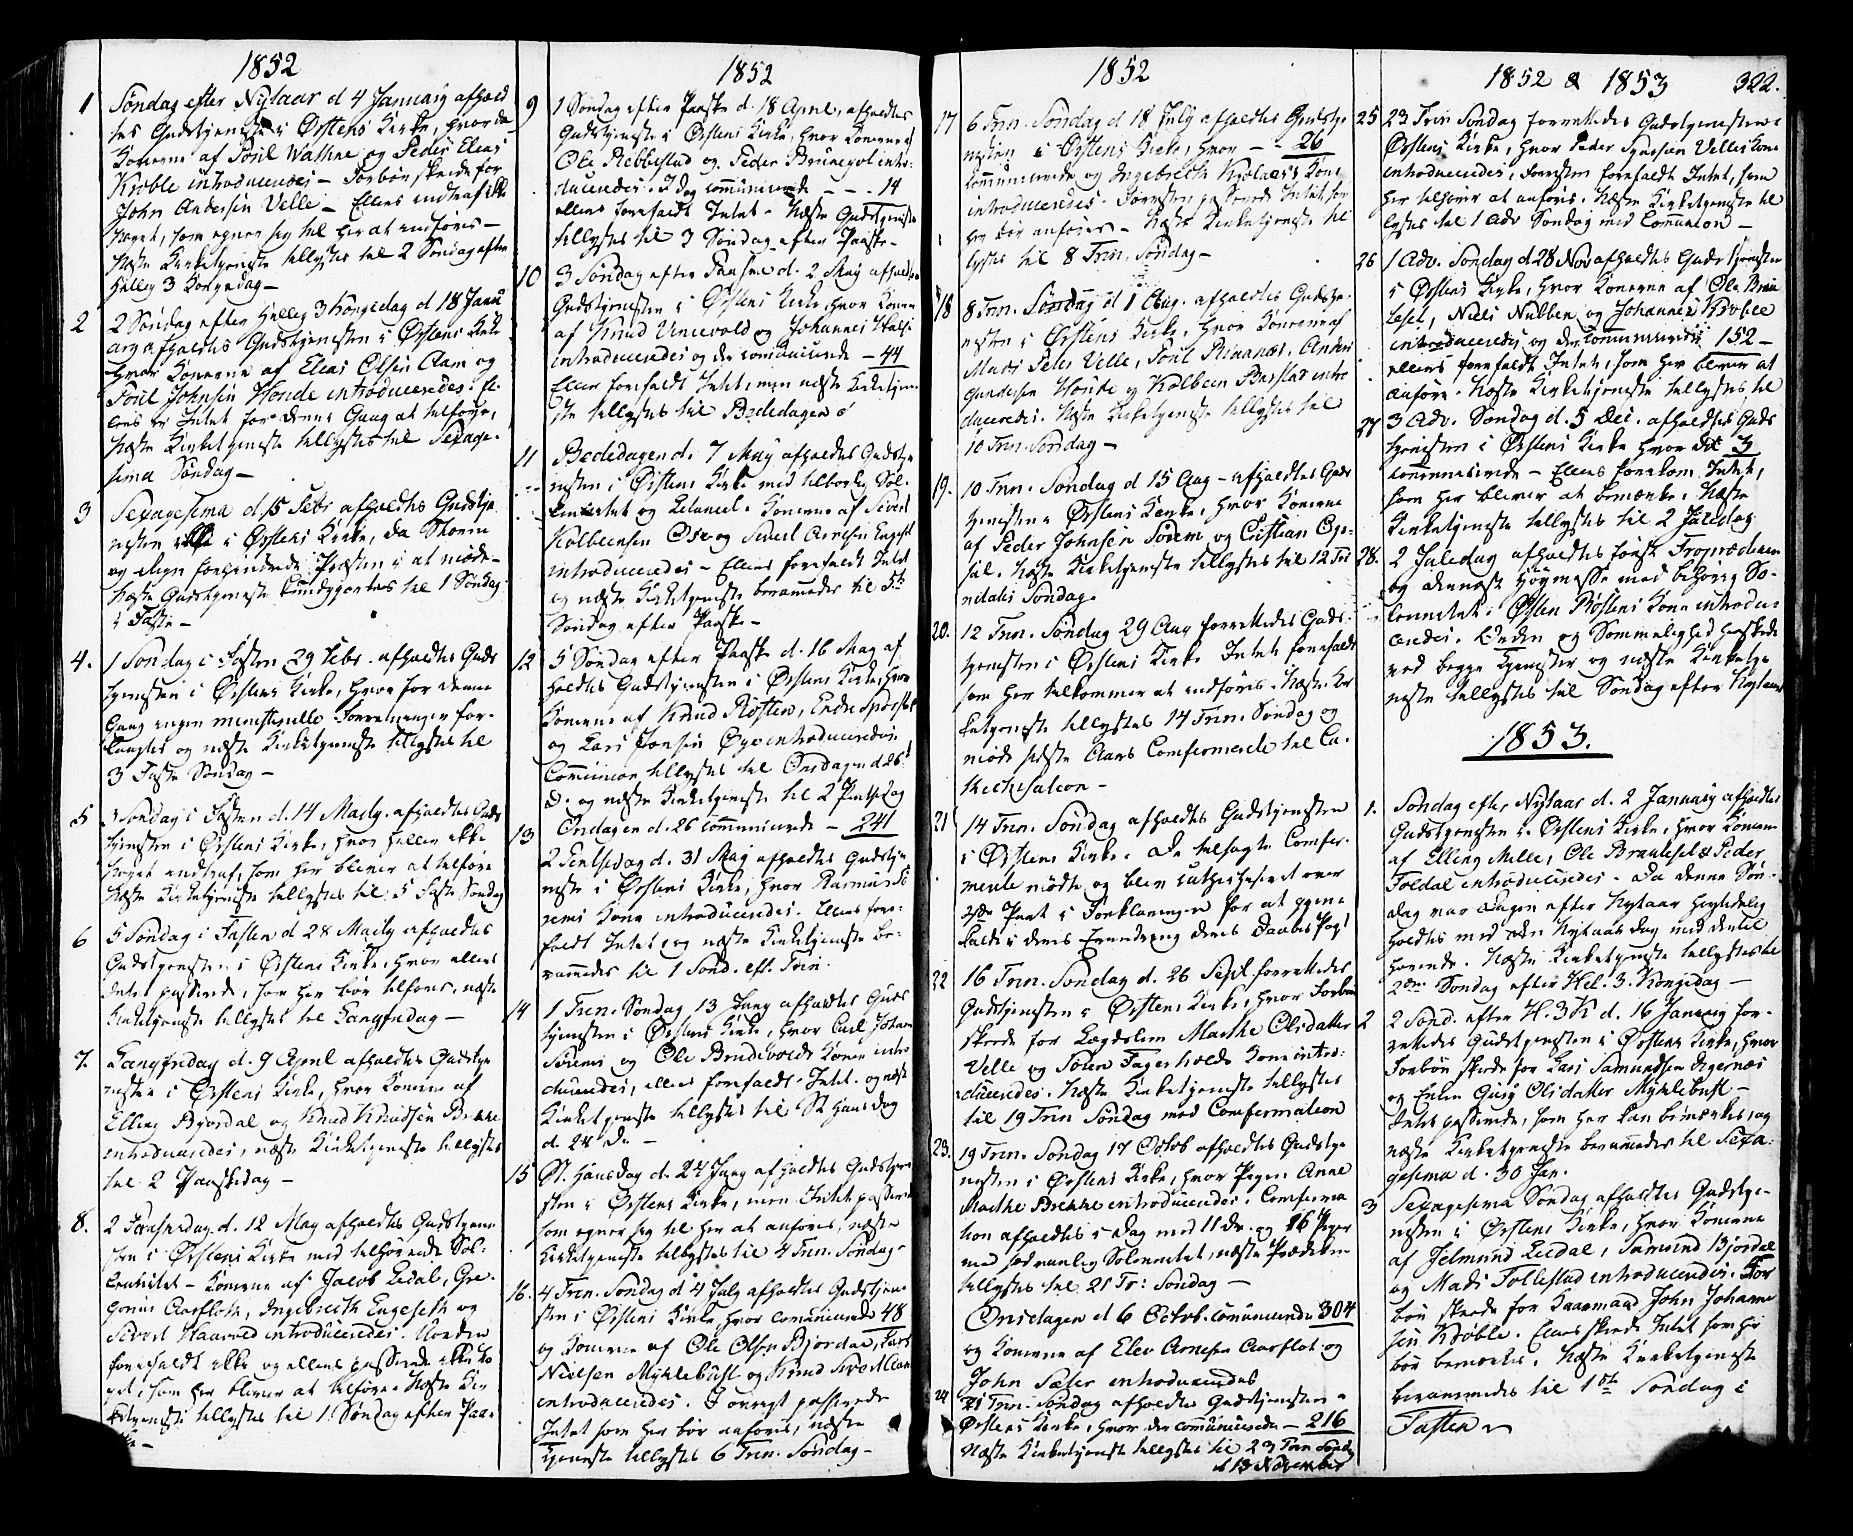 1852
1 Søndag efter Nytaar d 4 January afhold
tes Gudstjeneste i Ørstens Kirke, hvor da
Konerne af Poul Wathne og Peder Elias
Krøble introduceredes – Forbøn skeede for
John Andersen Velle – Ellers indtraf ikke
Noget, som egner sig til her at indføres –
Næste Kirketjeneste tillystes til 2 Søndag efter
Hellig 3 Kongedag –
2 2 Søndag efter Hellig 3 Kongedag d 18 Janu
ary afholdtes Gudstjenesten i Ørstens Kirke
hvor Konerne af Elias Olsen Aam og
Poul Johnsen Hovde introduceredes. El-
lers er Intet for denne Gang at tilføye,
Næste Kirketjeneste tillystes til Sexage-
sima Søndag –
3 Sexagesima d. 15 Febr afholdtes Gudstje
nesten ikke i Ørstens Kirke, da Storm
og Regn forhindrede Præsten i at møde –
Næste Gudstjeneste kundgjordes til 1 Søndag
i Faste –
4. 1 Søndag i Fasten 29 Febr. afholdtes Guds
tjenesten i Ørstens Kirke, hvor for denne
Gang ingen ministerielle Forretninger for-
langtes og næste Kirketjeneste tillystes til
3 Faste Søndag –
5 3 Søndag i Fasten d. 14 Marty. afholdtes Guds
tjenesten i Ørstens Kirke, hvor heller ikke
Noget indtraf, som her bliver at tilføre
Næste Kirketjeneste tillystes til 5 Faste Søndag
6 5 Søndag i Fasten d 28 Marty afholdtes
Gudstjenesten i Ørstens Kirke, hvor ellers
Intet passerede, som her bør tilføres, næste
Kirketjeneste tillystes til Langfredag –
7. Langfredag d. 9 April afholdtes Gudstje
nesten i Ørstens Kirke, hvor Konerne af
Elling Bjørdal og Knud Knudsen Brekke
introduceredes, næste Kirketjeneste tillystes
til 2 Paaskedag –
8. 2 Paaskedag d. 12 May afholdtes Gudstjene
sten i Ørstens Kirke med tilhørende Sol-
lennitet – Konerne af Jacob Lidal, Gre-
gorius Aarfloth, Ingebricth Engeseth og
Sivert Haavold introduceredes. Uorden
forefaldt ikke og ellers passerede ikke No
get, som her bliver at tilføre. Næste Kir
ketjeneste tillystes til 1. Søndag efter Paa
ske –
1852
9 1 Søndag efter Paaske d. 18 April, afholdtes
Gudstjenesten i Ørstens Kirke, hvor Konerne af
Ole Rebbestad og Peder Brunevol intro-
duceredes. I dag communicerede – – – 14
ellers forefaldt Intet – Næste Gudstjeneste
tillystes til 3 Søndag efter Paaske –
10 3 Søndag efter Paaske d. 2 May afholdtes
Gudstjenesten i Ørstens Kirke, hvor Konen
af Knud Vinevold og Johannes Halse
introduceredes og der communicerede – 44
Ellers forefaldt Intet, men næste Kirketjene
ste tillystes til Bededagen
11 Bededagen d. 7 May afholdtes Gudstje
nesten i Ørstens Kirke med tilbørlig Sol-
lennitet og Litaniet. Konerne af Sivert
Kolbeensen Ose og Sivert Arnesen Engeset
introduceredes – Ellers forefaldt Intet
og næste Kirketjeneste berammedes til 5te
Søndag efter Paaske –
12 5 Søndag efter Paaske d. 16 May af
holdtes Gudstjenesten i Ørstens Kirke, hvor
Konerne af Knud Røsten, Endre
og Lars Jonsen Øye introduceredes
Communion tillystes til Onsdagen d 26
d. og næste Kirketjeneste til 2 Pintsedag
13 Onsdagen d. 26 communicerede – 241
2 Pintsedag d. 31 May afholdtes Gudstje
neste i Ørstens Kirke, hvor Rasmus
Kone introduceredes. Ellers fore-
faldt Intet og næste Kirketjeneste be-
rammedes til 1 Sønd. eft. Trin.
14 1 Trin. Søndag 13 Juny afholdtes Guds
tjenesten i Ørstens Kirke, hvor Carl Johan
og Ole Brudevolds Koner intro
duceredes, ellers forefaldt Intet. og næste
Kirketjeneste tillystes til St Hansdag
d. 24 Ds –
15 St. Hansdag d. 24 Juny afholdtes Gudstjene
sten i Ørstens Kirke, men Intet passerede
som egner sig til her at anføres, næste
Kirketjeneste tillystes til 4 Trin. Søndag –
16. 4 Trin. Søndag d 4 July afholdtes Gudstjene
sten i Ørstens Kirke, hvor communicerede 48
og Konerne af Ole Olsen Bjørdal, Lars
Nielsen Myklebust og Knud Sivert Aam
introduceredes. I øvrigt passerede
Intet som her bør anføres, næste
Tjeneste tillystes 6 Trin. Søndag –
1852
17 6 Trin. Søndag d 18 July afholdtes Gudstje
nesten i Ørstens Kirke, hvor – – 26
communicerede og Ingebricth Kone
introduceredes. Foresten passerede Intet, som
her bør anføres – Næste Kirketjeneste til
lystes til 8 Trin. Søndag –
18 8 Trin. Søndag d 1 Aug. afholdtes Gudstje-
nesten i Ørstens Kirke, hvor Konerne af
Mads Peter Velle, Poul Riinanes, Anders
Gundersen Hovde og Kolbeen Barstad intro
duceredes. Næste Kirketjeneste tillystes til
10 Trin. Søndag –
19. 10 Trin. Søndag d 15 Aug – afholdtes Guds
tjenesten i Ørstens Kirke, hvor Konerne
af Peder Johnsen Sørem og Cristian
Næste Kirketjeneste tillystes til 12 Tri
nitatis Søndag.
20. 12 Trin. Søndag 29 Aug forrettedes Guds-
tjenesten i Ørstens Kirke Intet forefaldt
som her tilkommer at indføres. Næste Kir
ketjeneste tillystes 14 Trin. Søndag og
møde sidste Aars Confirmerede til Ca-
techisation –
21 14 Trin. Søndag afholdtes Gudstjenesten
i Ørstens Kirke. De tilsagte Confir-
merede mødte og blev catechiseret over
2den Part i Forklaringen for at gjen-
kalde i deres Erindring deres Daabs Pagt
22 16 Trin. Søndag d. 26 Sept. forrettedes
Gudstjenesten i Ørstens Kirke, hvor Forbøn
skeede for Lægdslem Marthe Olsdatter
Velle og Søren Fagerholds Kone intro-
duceredes. Næste Kirketjeneste tillystes
til 19 Trin Søndag med Confirmation
23. 19 Trin. Søndag 17 Octob afholdtes Gudstje
nesten i Ørstens Kirke, hvor Pigen Anne
Marthe Brekke introduceredes. Confirma
tion afholdtes i Dag med 11 Dr. og 16 Piger
med sædvanlig Solennitet, næste Prædiken
tillystes til 21 Tr: Søndag –
Onsdagen d 6 Octob. communicerede 304
og Konerne af Elev Arnesen Aarflot og
John Sæter introduceredes
24 21 Trin. Søndag afholdtes Gudstjenesten i
Ørstens Kirke, hvor der communicerede – 216
Næste Kirketjeneste tillystes til 23 Trin Søndag
d 13 November
1852 & 1853 322.
25 23 Trin Søndag forrettedes Gudstjenesten i
Ørstens Kirke, hvor Peder Velles Kone
introduceredes, foresten forefaldt Intet, som
her tilhører at anføres. Næste Kirketjeneste til
lystes til 1 Adv Søndag med Communion –
26 1 Adv. Søndag d 28 Nov afholdtes Gudstjenesten
i Ørstens Kirke, hvor Konerne af Ole Brau
teset, Niels Nubben og Johannes Krøble
introduceredes og der communicerede 152 –
ellers forefaldt Intet, som her bliver at
anføre. Næste Kirketjeneste tillystes til
27 3 Adv. Søndag d. 5 Dec. afholdtes Guds
tjenesten i Ørstens Kirke hvor det 3
communicerede – Ellers forekom Intet,
som her bliver at bemærke. Næste
Kirketjeneste tillystes til 2 Juledag
28. 2 Juledag afholdtes først Froprædiken
og dernæst Høymesse med behørig So-
lennitet. Østen Røstens Kone introdu-
ceredes. Orden og Sømmelighed herskede
ved begge Tjenester og næste Kirketje
neste tillystes til Søndag efter Nytaar
1853.
1. Søndag efter Nytaar d. 2 January afholdtes
Gudstjenesten i Ørstens Kirke, hvor Konerne
af Elling Melle, Ole Brauteset & Peder
Foldal introduceredes. Da denne Søn-
dag var Dagen efter Nytaar høytidelig
holdtes med den Nytaarsdag med dertil
hørende. Næste Kirketjeneste tillystes til
2den Søndag efter Hel. 3. Kongedag –
2 2 Sønd. efter H. 3 K d. 16 January for-
rettedes Gudstjenesten i Ørstens Kirke, hvor
Forbøn skede for Lars Samundsen Digernæs
og Enken Guri Olsdatter Myklebust –
Intet passerede, som her kan bemærkes, og
næste Kirketjeneste berammedes til Sexa-
gesima d. 30 Jan.
3 Sexagesima Søndag afholdtes Gudstje-
nesten i Ørstens Kirke, hvor Konerne
af Jelmund Lidal, Samund Bjørdal
og Mads Follestad introduceredes. For
bøn skede for Kaarmand John Johanne
sen Krøble. Ellers skede Intet som her
bør bemærkes. Næste Kirketjeneste
berammedes til 1ste Søndag i
Fasten